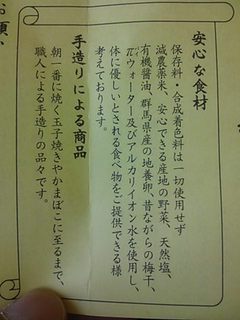 安心な食材
保存料・合成着色料は一切使用せず
減農薬米、安心できる産地の野菜、天然塩、
有機醤油、群馬県産の地養卵、昔ながらの梅干、
πウォーター及びアルカリイオン水を使用し、
体に優しいとされる食べ物をご提供できる様
考えております。
手造りによる商品
朝一番に焼く玉子焼きやかまぼこに至るまで、
職人による手造りの品々です。